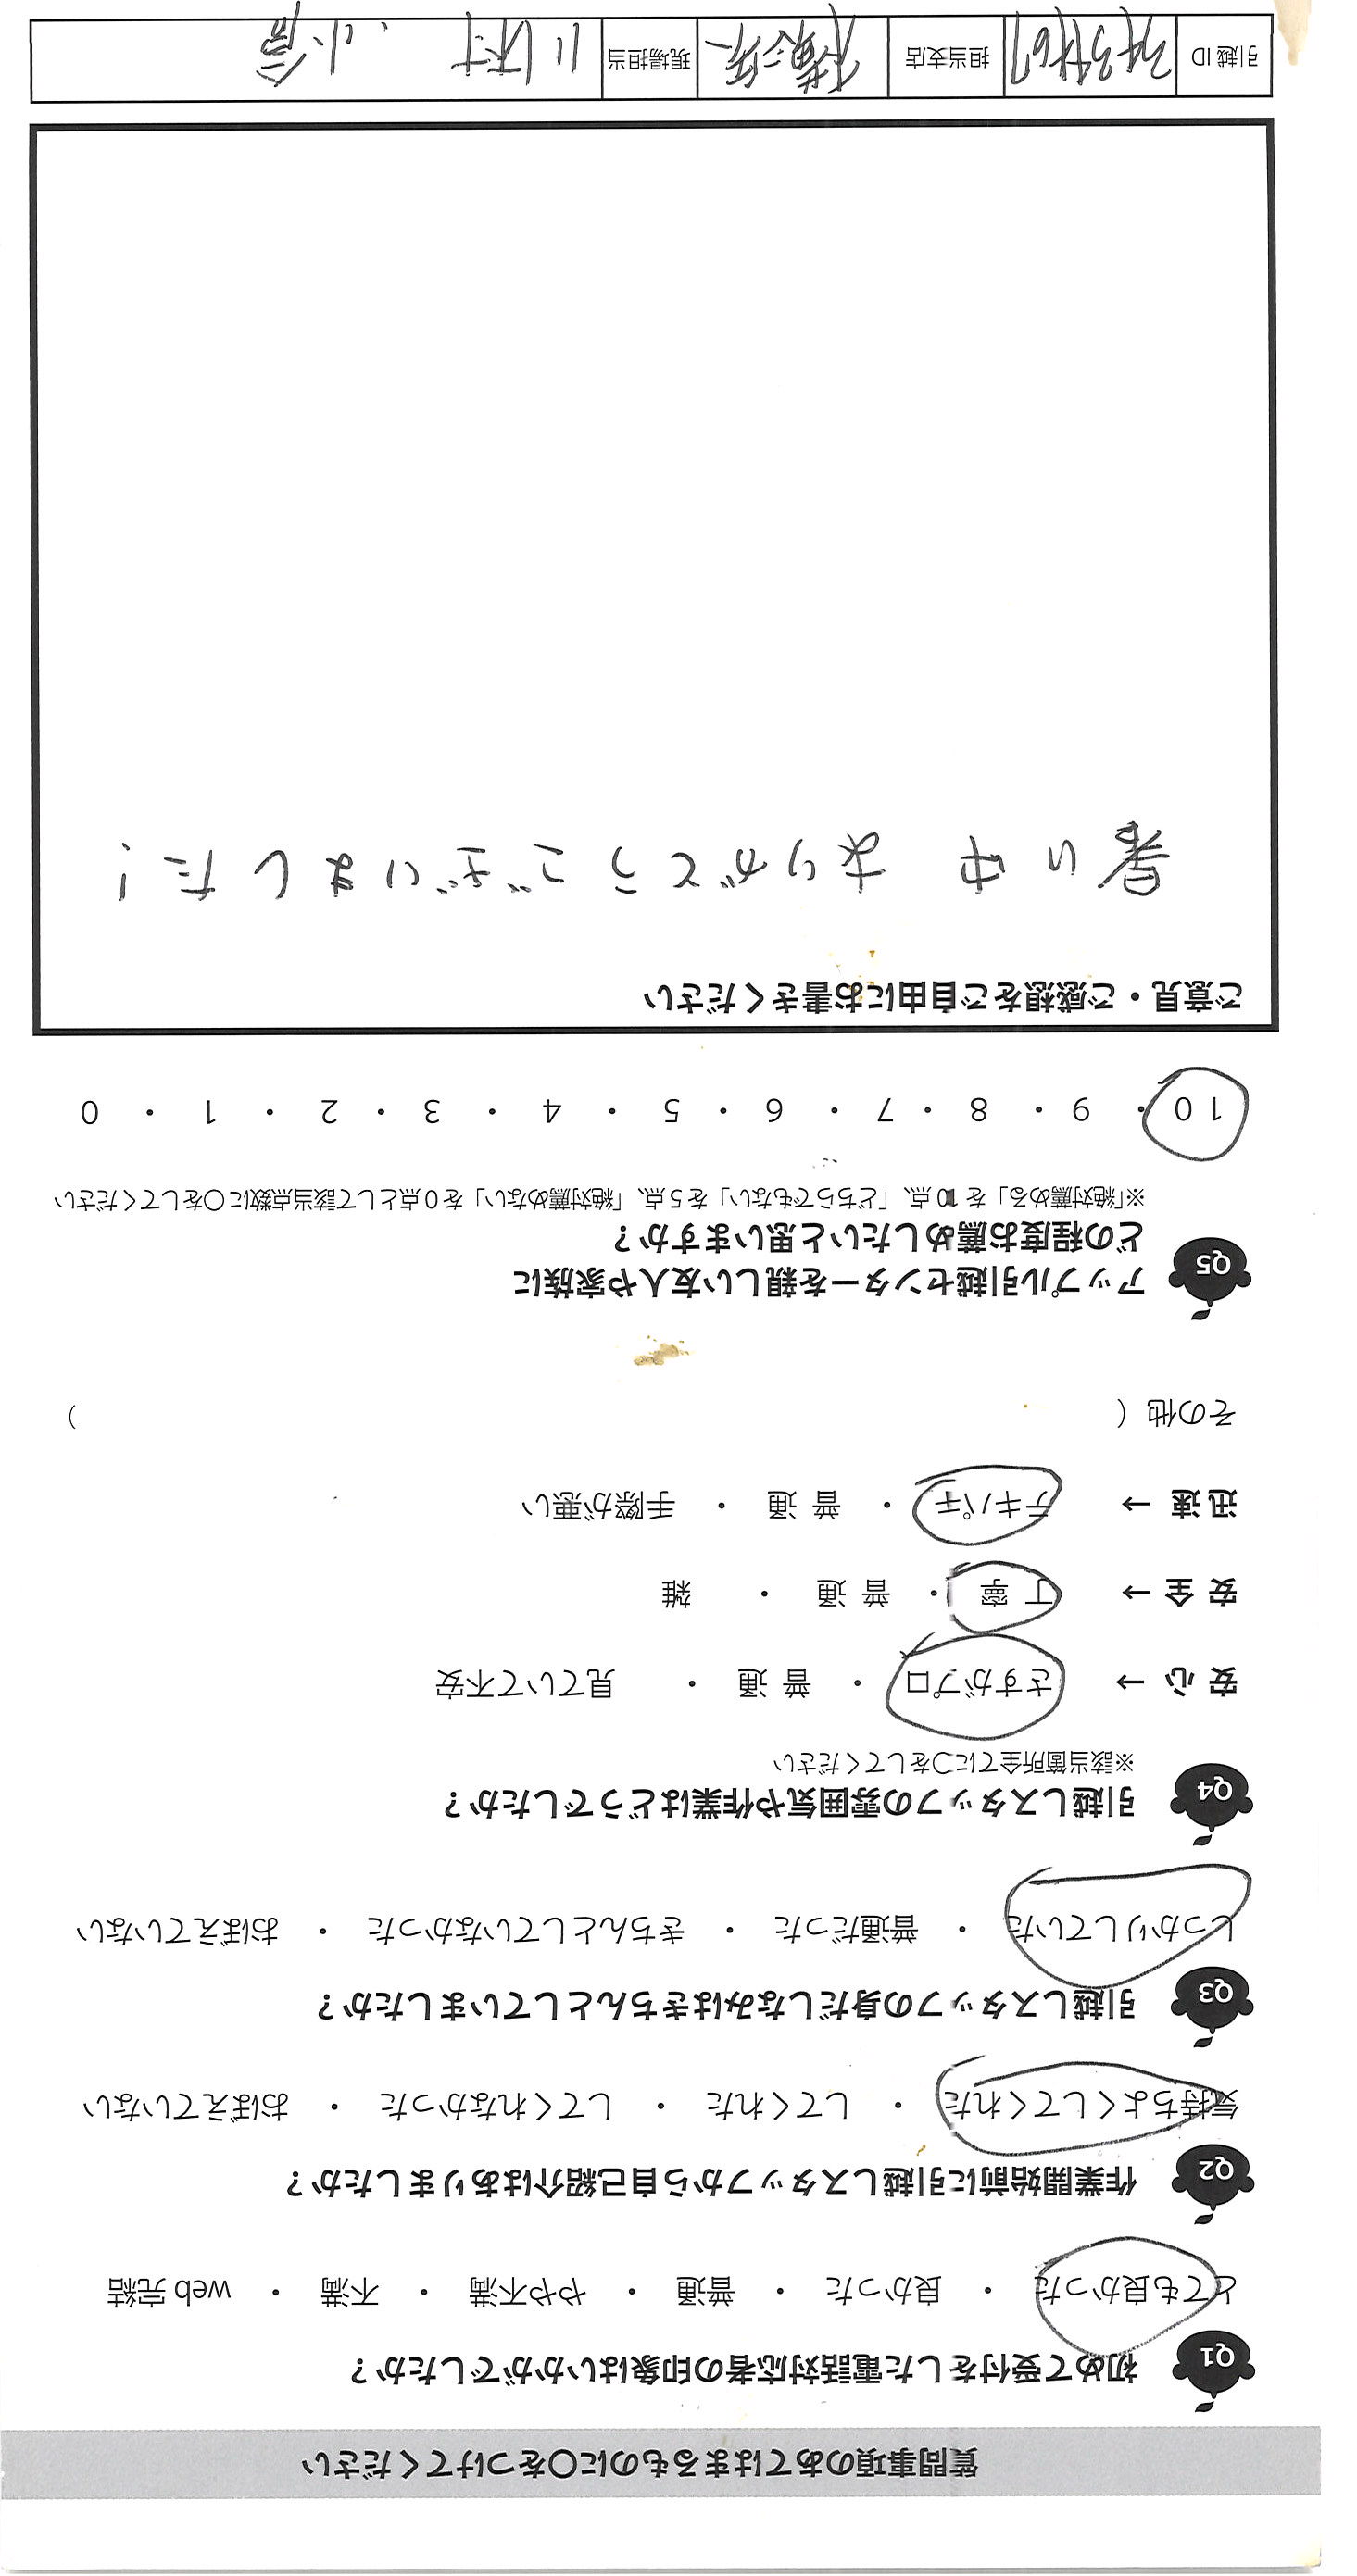 質問事項のあてはまるものに○をつけてください
Q1 初めて受付をした電話対応者の印象はいかがでしたか？
とても良かった ・ 良かった ・ 普通 ・ やや不満 ・ 不満 ・ web 完結
Q2 作業開始前に引越しスタッフから自己紹介はありましたか？
気持ちよくしてくれた ・ してくれた ・ してくれなかった ・ おぼえていない
Q3 引越しスタッフの身だしなみはきちんとしていましたか？
しっかりしていた ・ 普通だった ・ きちんとしていなかった ・ おぼえていない
Q4 引越しスタッフの雰囲気や作業はどうでしたか？
※該当箇所全てに○をしてください
安 心 → さすがプロ ・ 普 通 ・ 見ていて不安
安 全 → 丁 寧 ・ 普 通 ・ 雑
迅 速 → テキパキ ・ 普 通 ・ 手際が悪い
その他（ ）
Q5 アップル引越センターを親しい友人や家族に
どの程度お薦めしたいと思いますか？
※「絶対薦める」を 10点、「どちらでもない」を５点、「絶対薦めない」を０点として該当点数に○をしてください
10 ・ 9 ・ 8 ・ 7 ・ 6 ・ 5 ・ 4 ・ 3 ・ 2 ・ 1 ・ 0
ご意見・ご感想をご自由にお書きください
暑い中 ありがとうございました！
引越 ID 担当支店 横浜 現場担当 川村、小倉